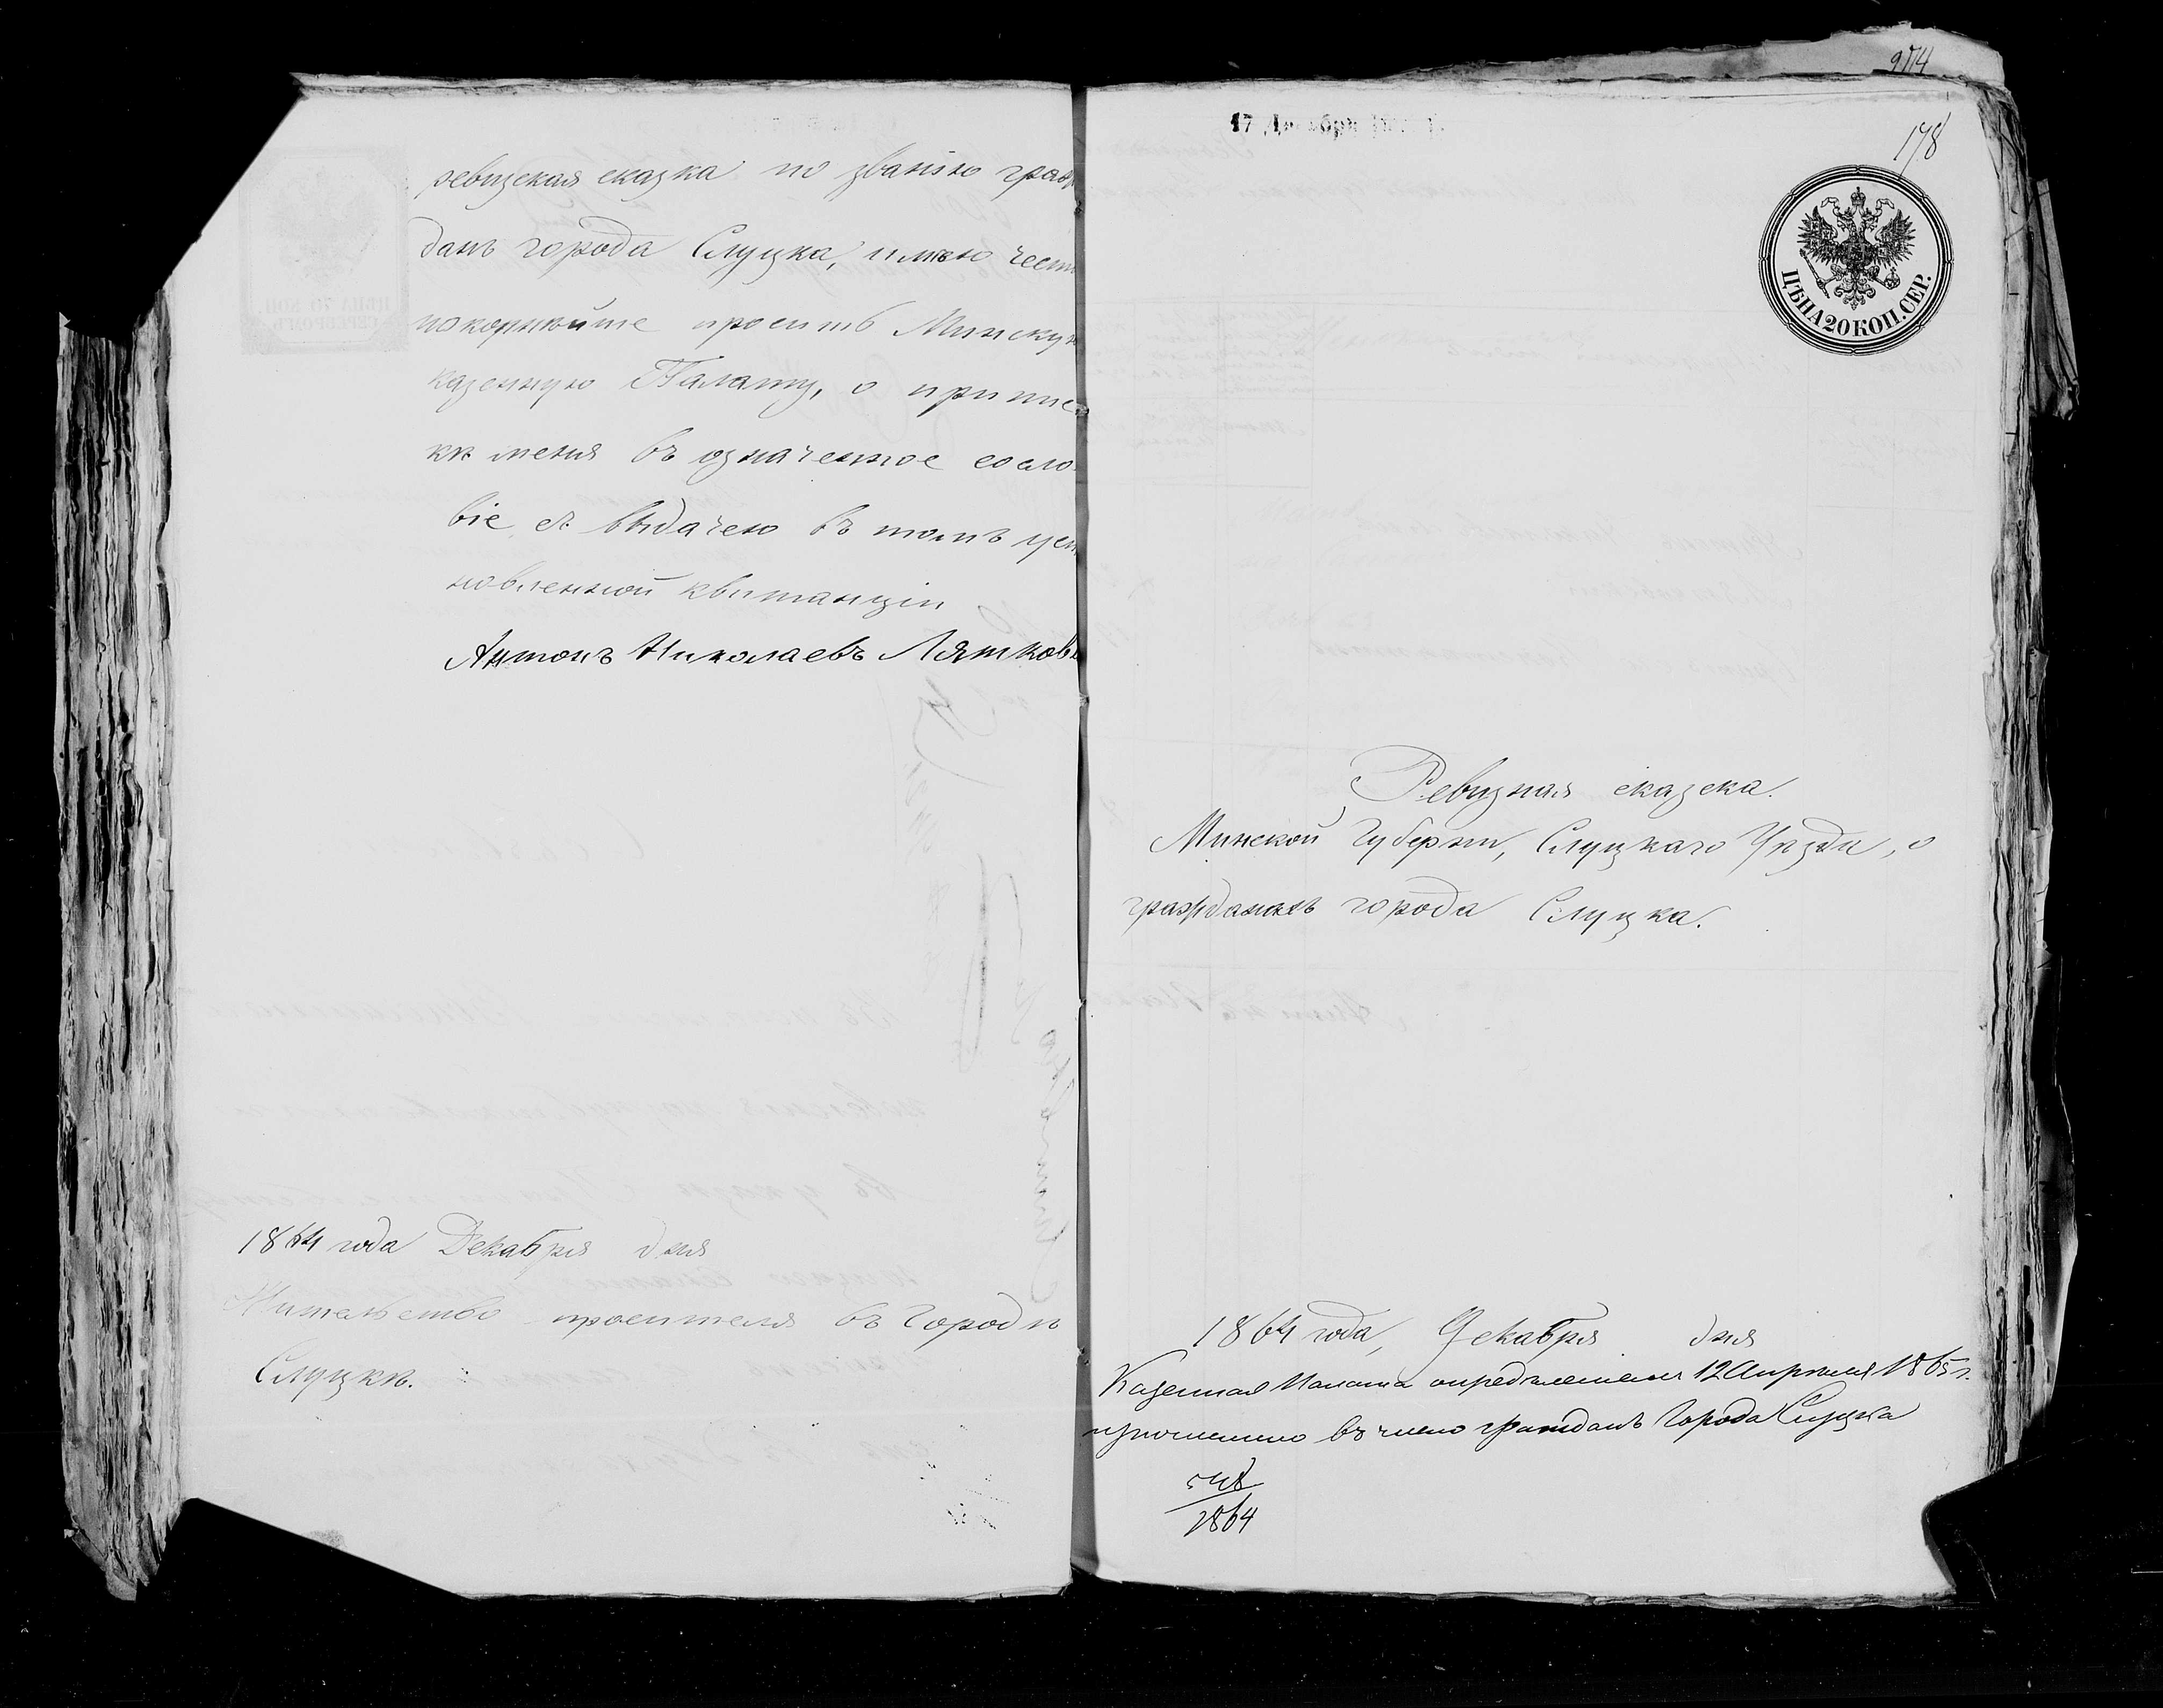 ревизская сказка по званію граж
данъ города Слуцка, имѣю чест
покорнѣйше просить Минскую
казенную Палату, о припис
кѣ меня въ означенное сосло
віе съ выдачею въ томъ уст
новленной квитанціи
Антонъ Николаевъ Лятков
1864 года Декабря дня
Жительство просителя въ городѣ
Слуцкѣ.
974
17 Декабря
178
ЦѢНА 20 КОП. СЕР.
Ревизная сказска.
Минской Губерніи, Слуцкаго Уѣзда, о
гражданахъ города Слуцка.
1864 года, Декабря дня
Казенная Палата опредѣленіемъ 12 Апрѣля 1865 г.
въ число гражданъ Города Слуцка
548
1864